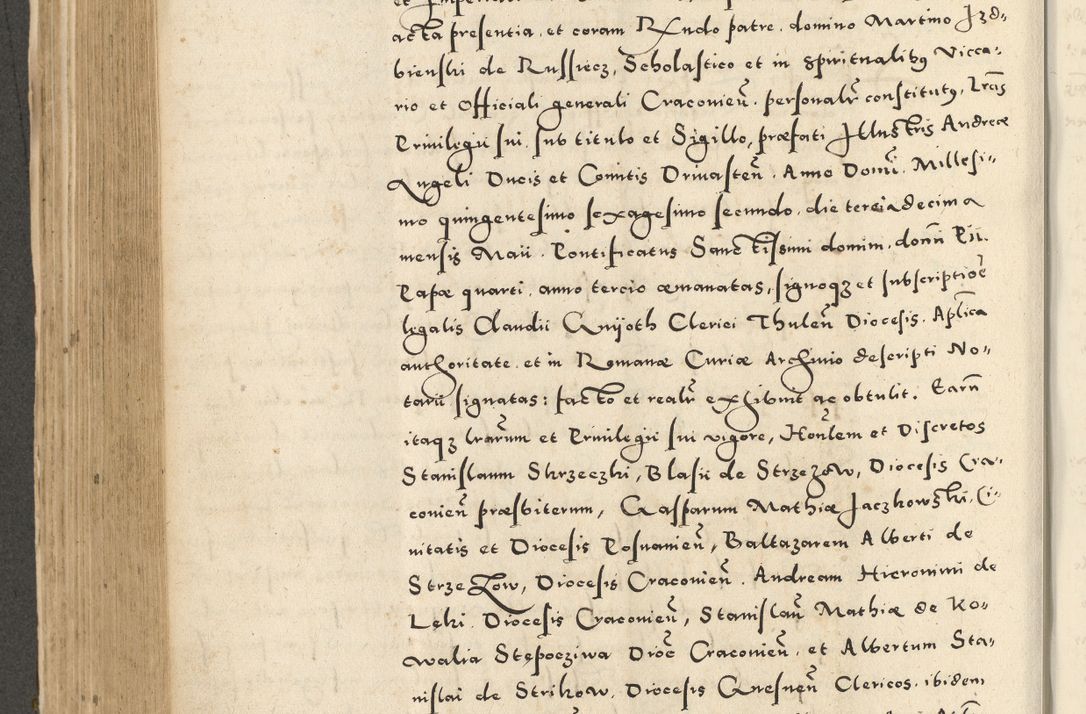 acta presentia, et coram Rxndo patre, domino Martino Izd„
bienski de Russiecz, Scholastico et in spiritualibꝫ Vicca„
rio et Officiali generali Craconieñ. personalr̃ constitutꝰ, Lrãs
Priuilegii sui, sub titulo et Sigillo, præfati Illustris Andreæ
Angeli Ducis et Comitis Driuasteñ. Anno Domĩ. Millesi„
mo quingentesimo sexagesimo secundo, die tercia decima
mensis Maii. Pontificatus Sanctissimi domini, donñ Pii.
Papæ quarti, anno tercio æmanatas, signoqꝫ et subscriptioẽ
legalis Claudii Guÿoth Clerici Thuleñ Diocesis. Aplĩca
authoritate, et in Romanæ Curiæ Archiuio descripti No„
tarii signatas: facto et realr̃ exhibuit ac obtulit. Earũ
itaqꝫ lrarũm et Priuilegii sui vigore, Honlẽm et Discretos
Stanislaum Skrzeczki, Blasii de Strzezow, Diocesis Cra„
conieñ præsbiterum, Gasparum Mathiæ Jaczkowski, Ci„
uitatis et Diocesis Posnanieñ, Baltazarem Alberti de
Strzezow, Diocesis Craconieñ. Andream Hieronimi de
Lęki. Diocesis Craconieñ, Stanislaũ Mathiæ de Ko„
walia Stępocziwa Dioc̃ Craconieñ. et Albertum Sta„
nislai de Strikow, Diocesis Gnesneñ Clericos, ibidem